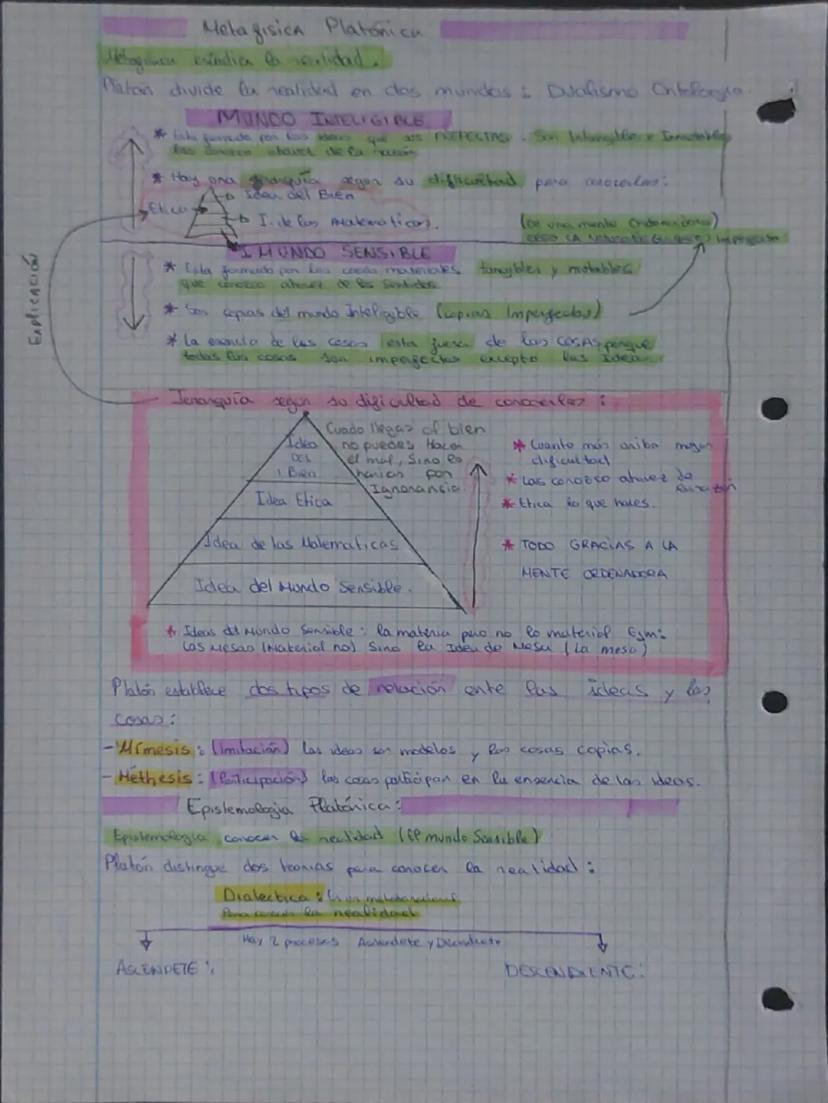 Metafisica Platónica
Metafisica estudica la realidad.
Platón divide la realidad en dos mundos : Dualismo Ontologio.
MUNDO INTELIGIBLE
* Esta formado por las ideas que son PERFECTAS. Son Intangibles e Inmutables
las conozco atravez de la razón
* Hay una jerarquía segun su dificultad para conocerlas:
Idea del Bien
Etica
I. de las Matematicas.
(De una mente Ordenadora)
imperfecta
MUNDO SENSIBLE
* Esta formado por las cosas materiales tangibles y mutables
que conozco atravez de los sentidos
* Son copias del mundo Inteligible (copias Imperfectas)
* La esencia de las cosas esta fuera de las COSAS porque
todas las cosas son imperfectas excepto las Ideas.
Explicación
Jerarquía segun su dificultad de conocerlas :
Cuado llegas al bien
no puedes Hacer
el mal, Sino lo
harias por
Ignorancia
Idea
DEL
Bien
Idea Etica
Idea de las Matematicas
Idea del Mundo Sensible.
* Cuanto más ariba mayor
dificultad
* Las conozco atravez de
la razón
* Etica lo que haces.
* TODO GRACIAS A LA
MENTE ORDENADORA
* Ideas del Mundo Sensible : la materia pero no lo material Ejm:
Las Mesas (Material no) Sino la Idea de Mesa (La mesa)
Platón establece dos tipos de relación ente las ideas y las
cosas :
- Mímesis : (Imitación) las ideas son modelos y las cosas copias.
- Méthesis : (Participación) las cosas participan en la encencia de las ideas.
Epistemologia Platónica :
Epistemologia conocer la realidad (El mundo Sensible)
Platón distingue dos teorias para conocer la realidad :
Dialectica : Es un metodo racional
Para conocer la realidad
Hay 2 procesos Asendete y Decendiente
ASCENDETE :
DESCENDIENTE :